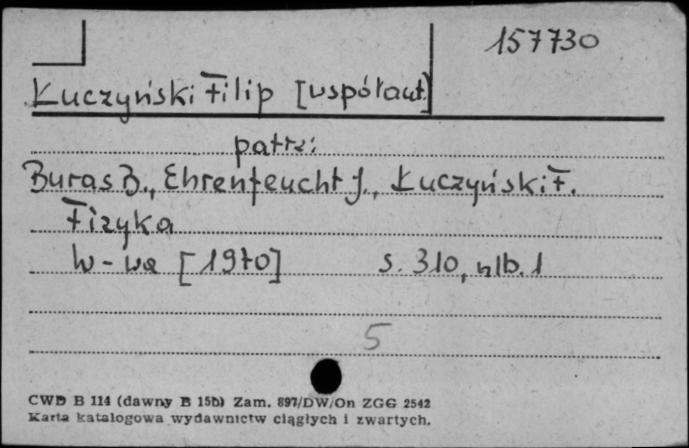 157730
Łuczyński Filip [współaut]
patrz:
Buras B., Ehrenfeucht J., Łuczyński F.
Fizyka
W-wa [1970] s. 310, nlb. 1
5
CWD B 114 (dawny B 15b) Zam. 897/DW/On ZGG 2542
Karta katalogowa wydawnictw ciągłych i zwartych.